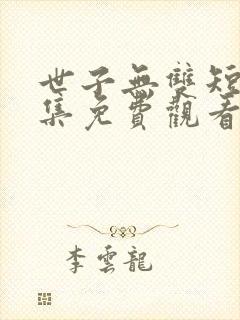 世子無雙短
集免費觀看
李雲龍